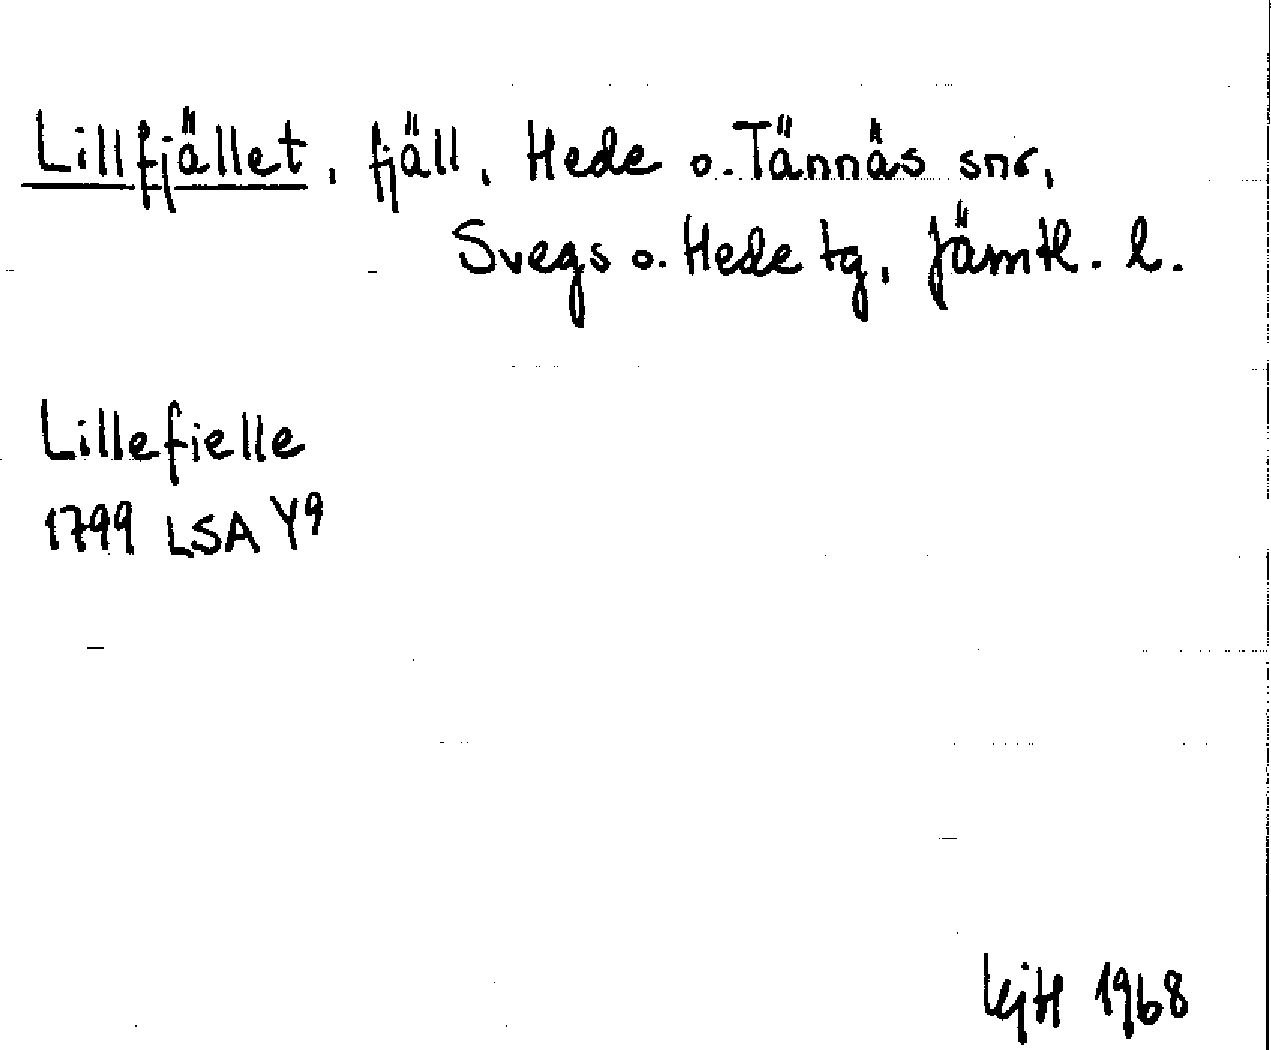 Lillfjället, fjäll, Hede o. Tännäs snr,
Svegs o. Hede tg, Jämtl. l.
Lillefielle
1799 LSA Y9
1968